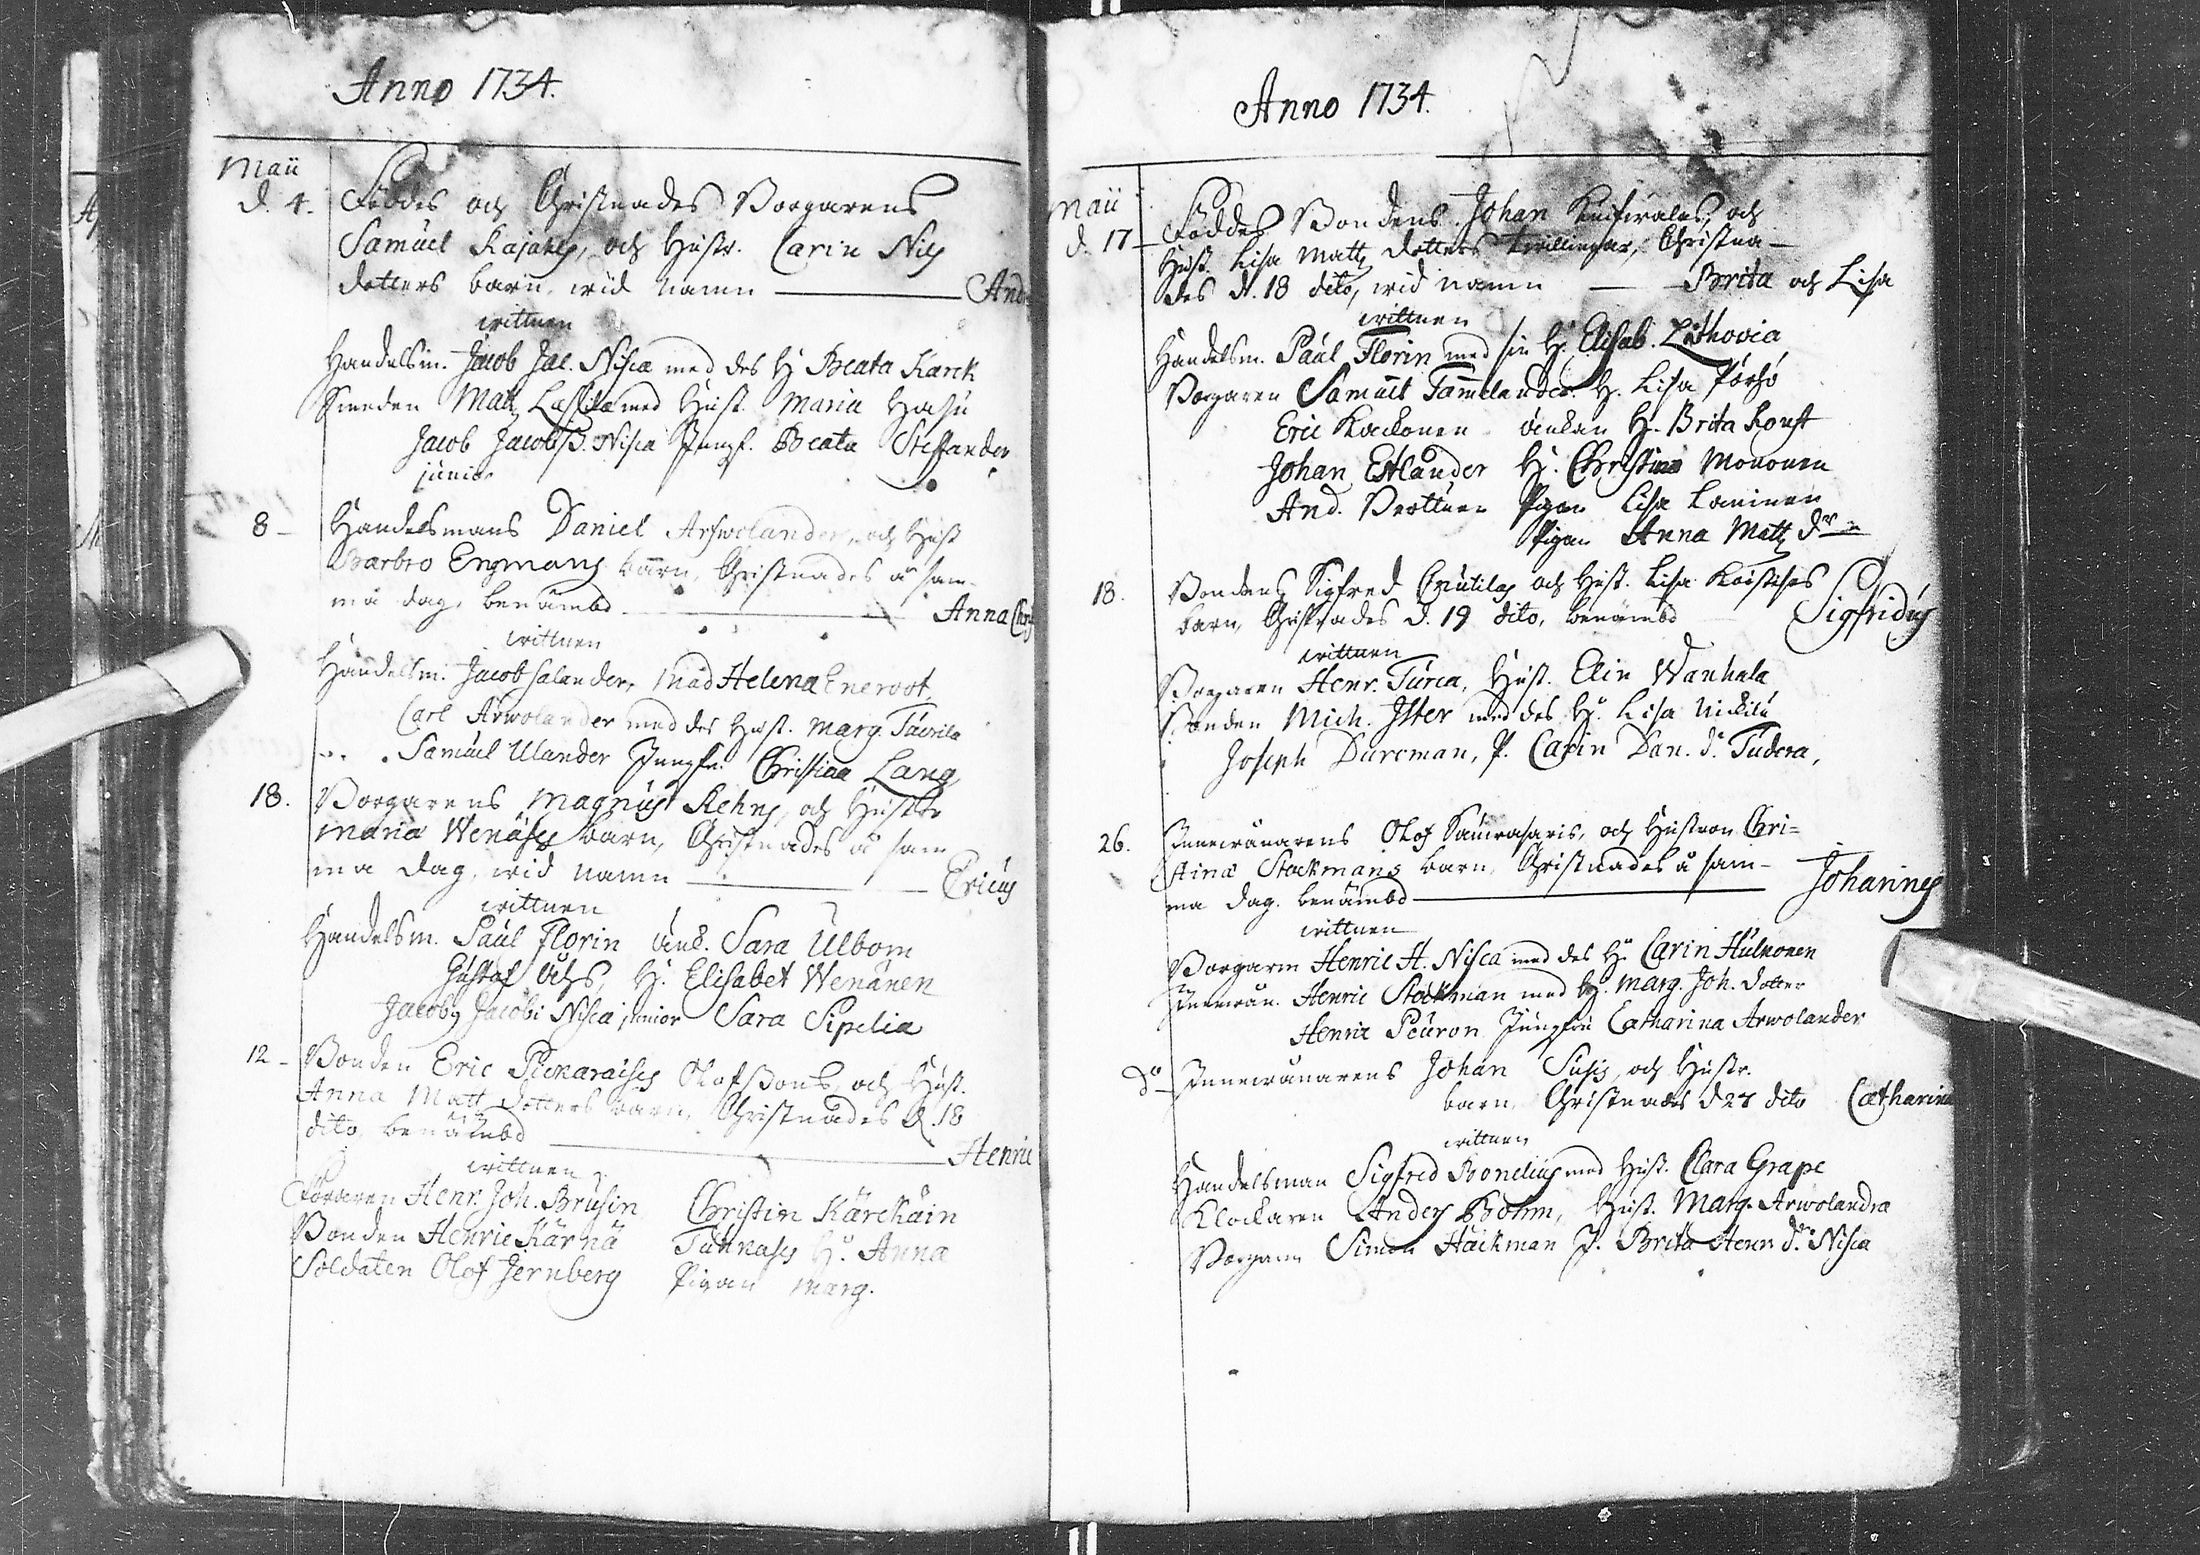 Anno 1734.
Maii
d. 4. Föddes och Christnades Borgarens
Samuel Kajanes, och Hustr. Carin Nils
dotters barn, wid namn — And
wittnen
Handelsm. Jacob Jac. Nisca med des H. Beata Karck
Smeden Matz Lassila med Hust. Maria Hasu
Jacob Jacobss. Nisca Jungf. Beata Steffander
junior
8 — Handelsmans Daniel Arfwolander, och Hust
Barbro Engmans barn, Christnades å sam-
ma dag, benämbd — Anna Chr
wittnen
Handelsm. Jacob Salander, Mad Helena Eneroot
Carl Arwolander med des Hust. Marg. Tavrila
Samuel Ulander Jungfr. Christina Lang
18. Borgarens Magnus Kehns, och Hustr
Maria Wenäses barn, Christnades å sam
ma dag, wid namn — Ericus
wittnen
Handelsm. Paul Florin änk. Sara Ulbom
Gustaf Uhs, H. Elisabet Wenänen
Jacobus Jacobi Nisca junior Sara Sipelia
12 — Bonden Eric Olofsons, och Hust.
Anna Matt dotters barn, Christnades d. 18
dito, benämbd — Henric
wittnen
Henr. Joh. Brusin Christin Kärckäin
Bonden Henric Kärnä H. Anna
Soldaten Olof Jernberg Pigan Marg.
Anno 1734.
Maii
d. 17 — Föddes Bondens Johan och
Hust. Lisa Matz dotters twillingar, Christna-
des d. 18 dito, wid namn — Brita och Lisa
wittnen
Handelsm. Paul Florin med sin H. Elisab. Lithovia
Borgaren Samuel Tammelander. H. Lisa
Eric Kockonen änkan H. Brita Konst
Johan Estlander H. Christina Mononen
And. Pigan Lisa Laminen
Pigan Anna Matz dr
18. Bondens Sigfred och Hust. Lisa
barn, Christnades d. 19 dito, benämbd Sigfridus
wittnen
Borgaren Henr. Turca, Hust. Elin Wanhala
Bonden Mich. Itter med des H. Lisa Nickilä
Joseph Durcman, P. Carin Dan. dr Tudera,
26. Innewånarens Olof och Hustrun Chri=
stina Stockmans barn, Christnades å sam-
ma dag. benämbd — Johannes
wittnen
Borgarn Henric H. Nisca med des H. Carin Hulkonen
Innewån. Henric Stockman med H. Marg. Joh. dotter
Henric Peuron Jungfru Catharina Arwolander
do — Innewånarens Johan Susis, och Hustr.
barn, Christnades d 27 dito Catharina
wittnen
Handelsman Sigfred Bonelius med Hust. Clara Grape
Klockaren Anders Bohm, Hust. Marg. Arwolandra
Borgarn Simon Häckman P. Brita Henr. dr Nisca